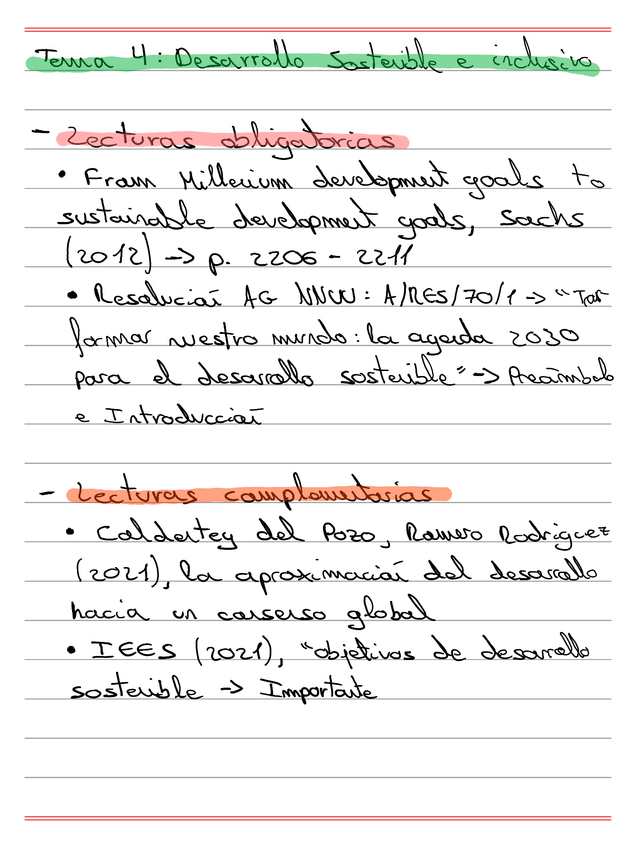 Tema 4: Desarrollo Sostenible e inclusivo
- Lecturas obligatorias
• From Millenium development goals to
sustainable development goals, Sachs
(2012) -> p. 2206 - 2211
• Resolución AG NNUU: A/RES/70/1 -> "Tras
formar nuestro mundo: la agenda 2030
para el desarrollo sostenible" -> Preámbulo
e Introducción
- Lecturas complementarias
• Caldentey del Pozo, Romero Rodríguez
(2021), la aproximación del desarrollo
hacia un consenso global
• IEES (2021), "objetivos de desarrollo
sostenible -> Importante